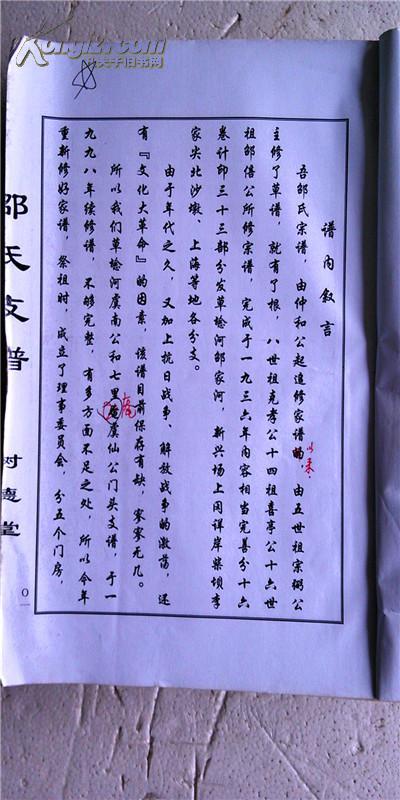 谱内叙言
吾邵氏宗谱，由仲和公起追修家谱的，由五世祖宗弼公
以来．
主修了草谱，就有了根，八世祖克孝公十四祖喜亭公十六世
祖邵僖公所修宗谱，完成于一九三六年内容相当完善分十六
卷计印三十三部分发草埝河邹家河，新兴场上冈详岸柴坝李
家尖北沙墩、上海等地各分支。
由于年代之久，又加上抗日战争、解放战争的激荡，还
有『文化大革命』的因素，该谱目前保存有缺，寥寥无几。
所以我们草埝河虞南公和七里庵虞仙公门头支谱，于一
庵
九九八年续修谱，不够完整，有多方面不足之处，所以今年
重新修好家谱，祭祖时，成立了理事委员会，分五个门房，
邵氏支谱
树德堂
Kongfz.com
孔夫子旧书网